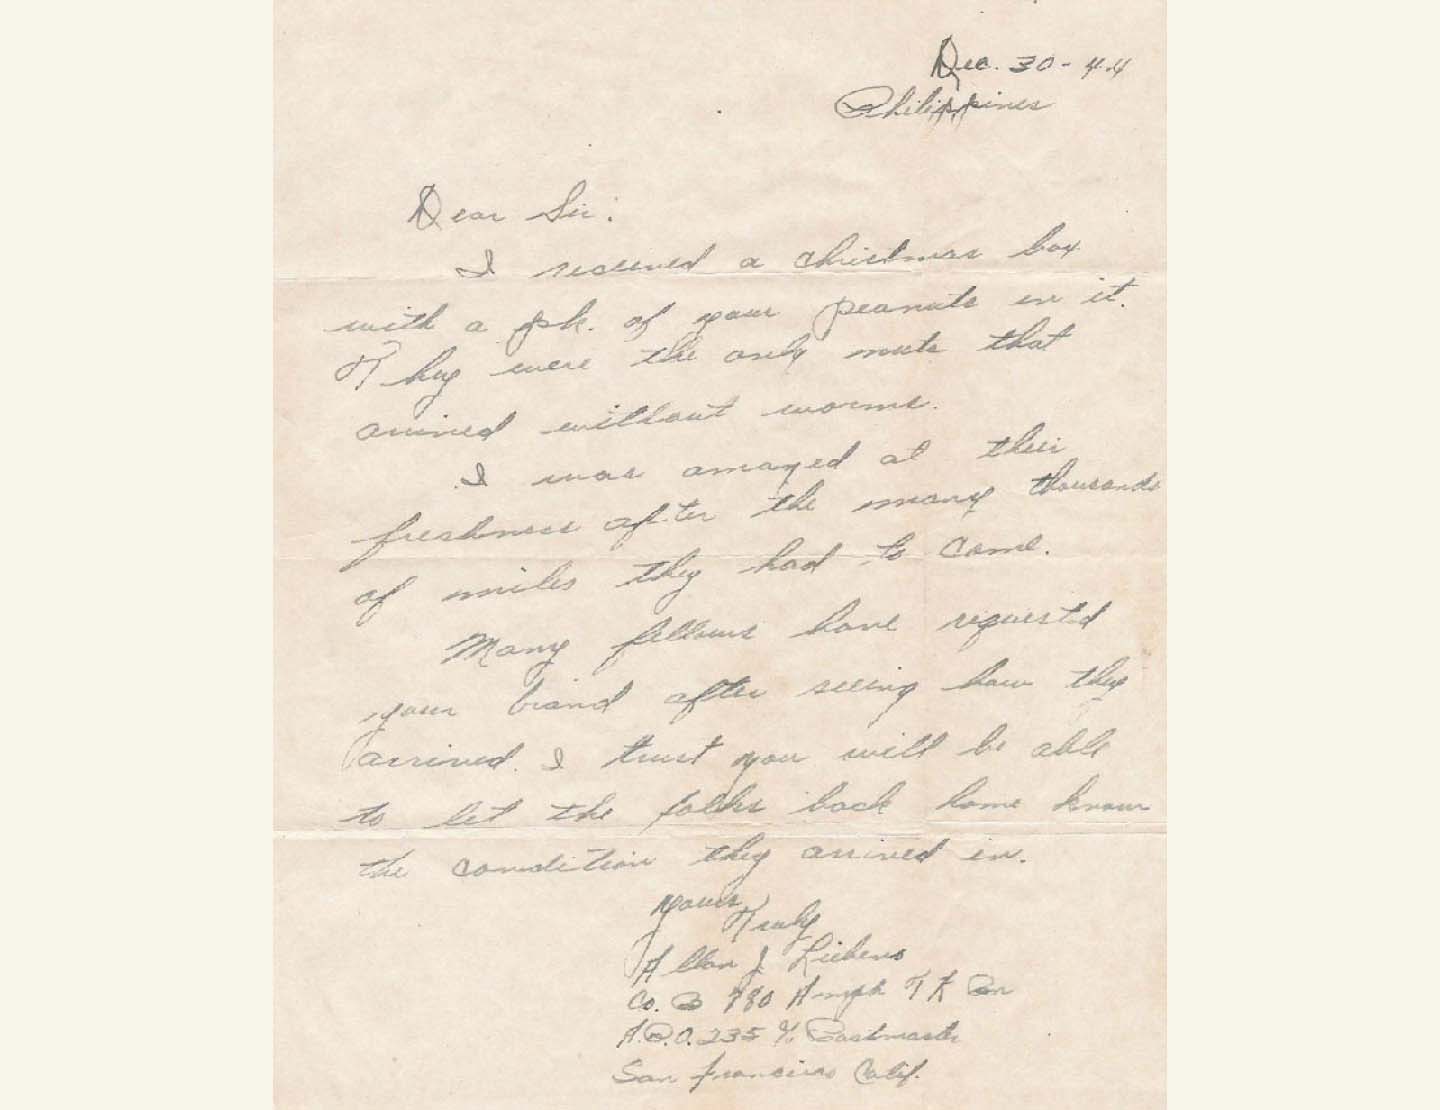 Dec. 30 - 44
Philippines
Dear Sir:
I received a Christmas box
with a pk. of your peanuts in it.
They were the only nuts that
arrived without worms.
I was amazed at their
freshness after the many thousands
of miles they had to come.
Many fellows have requested
your brand after seeing how they
arrived. I trust you will be able
to let the folks back home know
the condition they arrived in.
Yours
Truly
Allan J
Co. B 780 Amph TK Bn
A.P.O. 235 % Postmaster
San Francisco Calif.